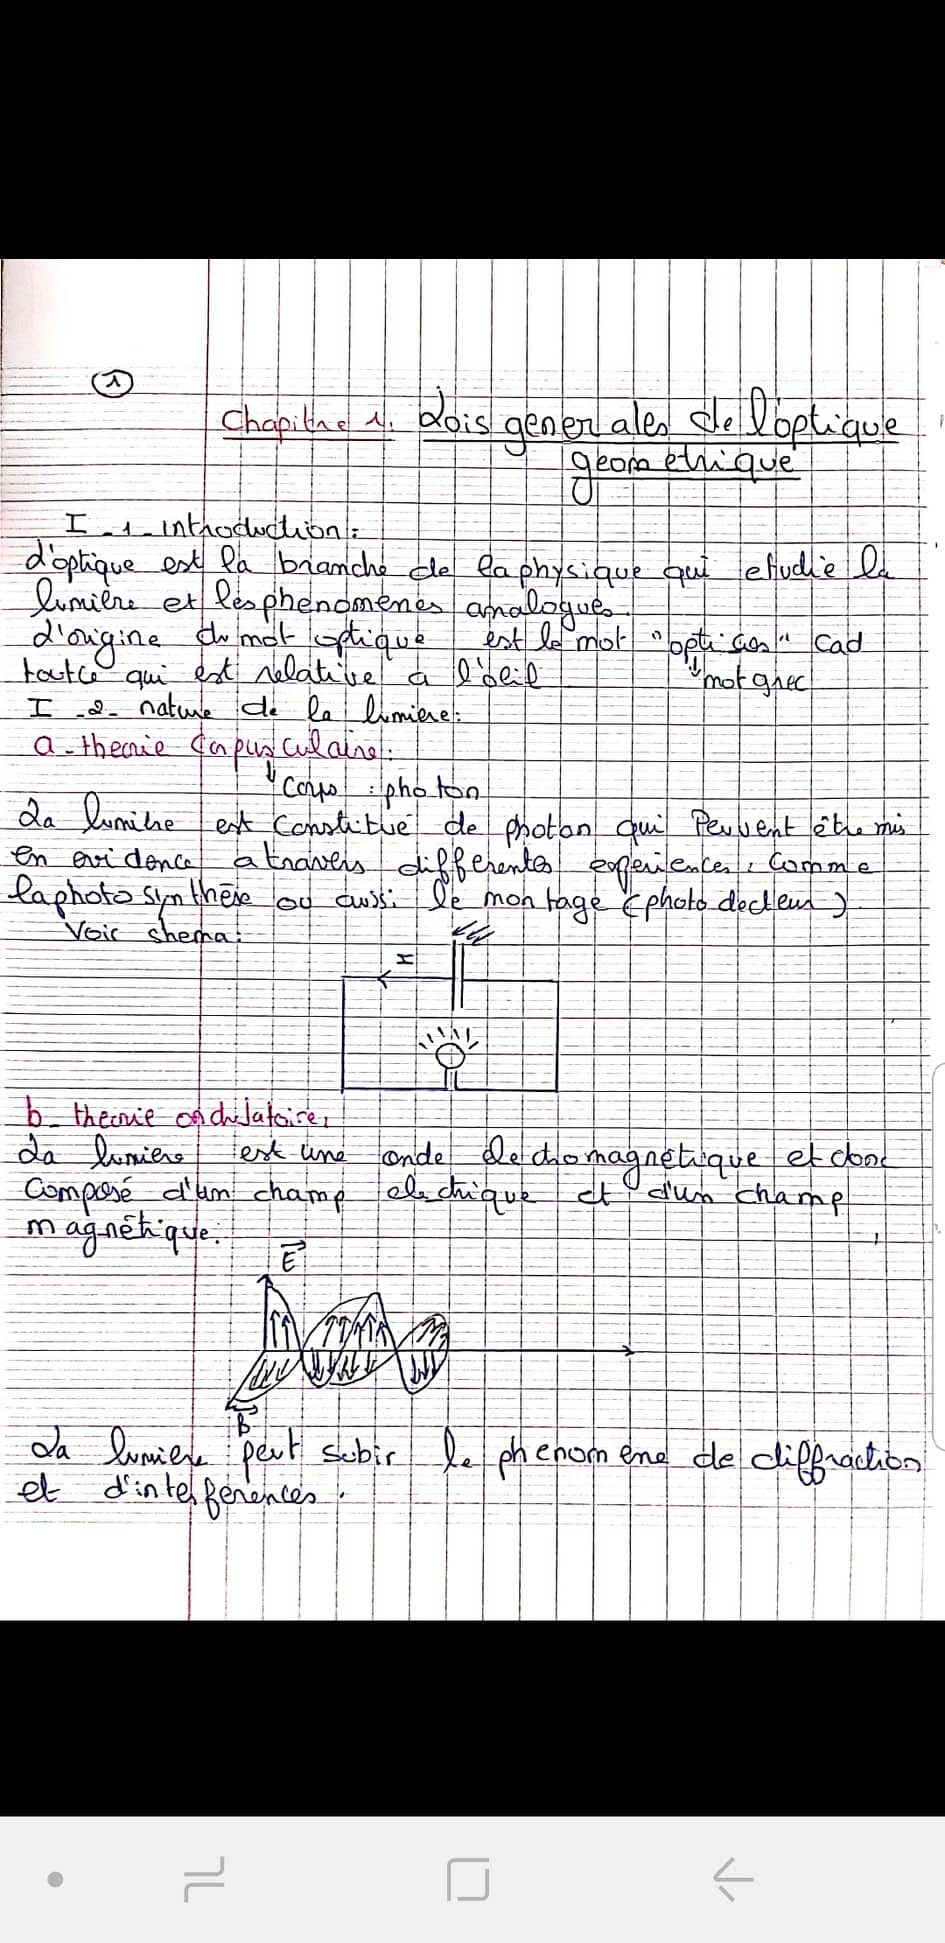 1
Chapitre 1. Lois generales de l'optique
geometrique
I - 1 - introduction :
L'optique est la branche de la physique qui etudie la
lumière et les phenomenes analogues.
L'origine du mot optique est le mot "opticos" cad
toutce qui est relative a l'oeil
mot grec
I - 2 - nature de la lumiere :
a - theorie Corpusculaire :
Corps : photon
La lumière est constitué de photon qui Peuvent être mis
en evidence a travers differentes experiences, comme
la photo synthèse ou aussi le montage (photo decteur)
Voir shema :
I
b - theorie ondulatoire,
La lumiere est une onde electromagnétique et donc
Composé d'un champ electrique et d'un champ
magnétique.
E
B
La lumiere peut subir le phenomène de diffraction
et d'interférences.